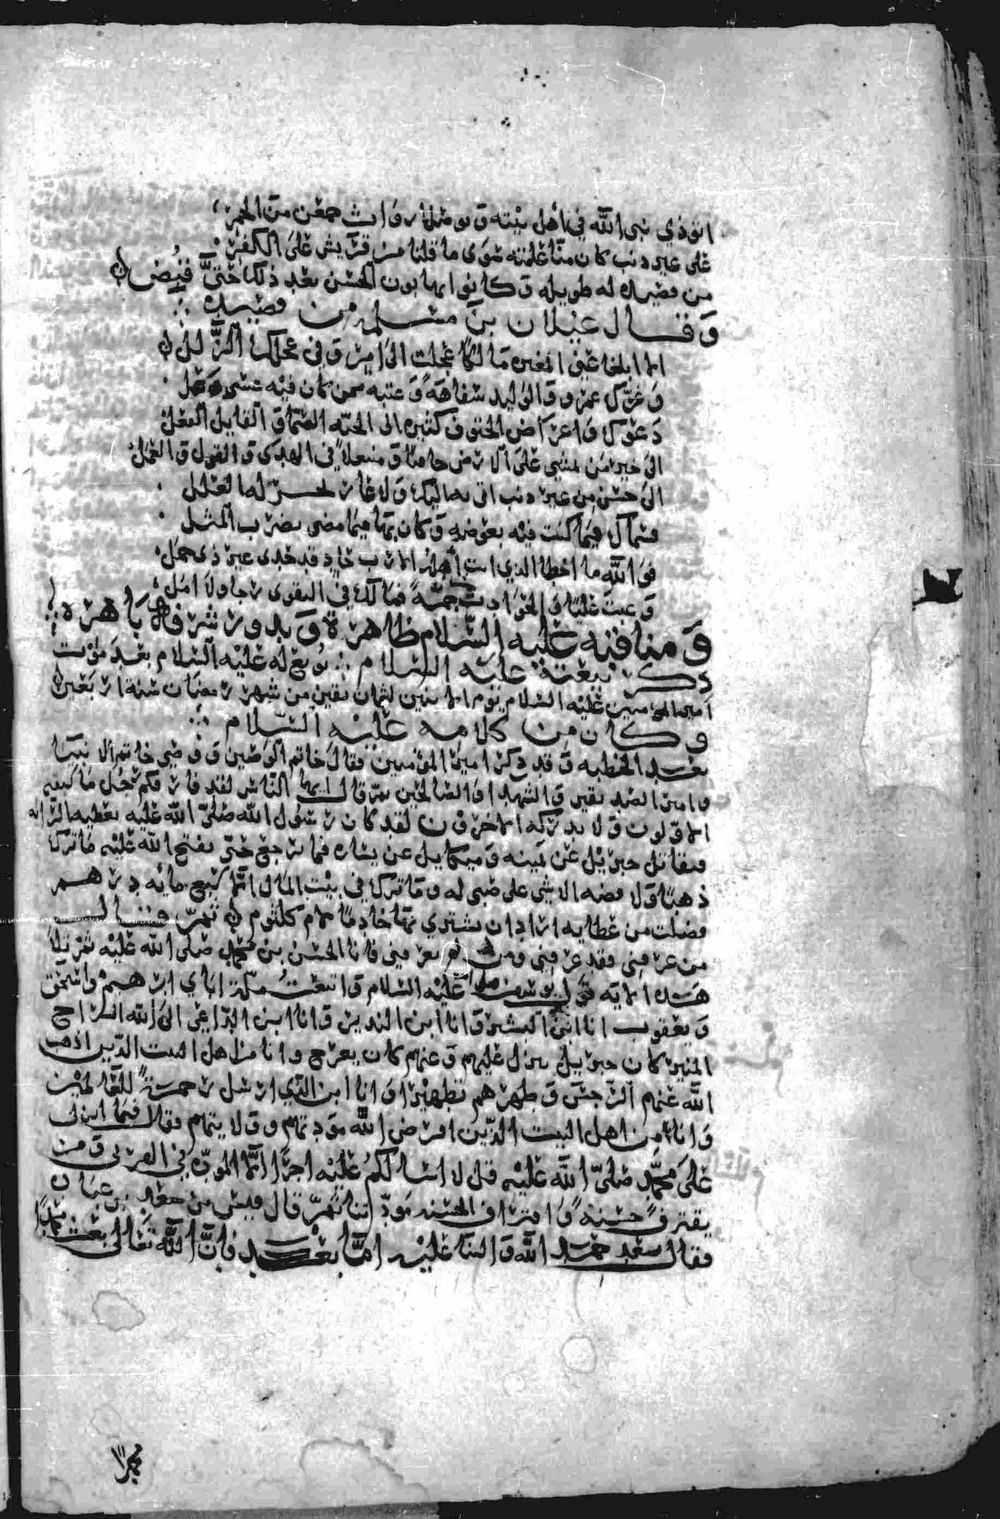 اتوذي نبي الله في أهل بيته وتو وانت من الحمر
على غير ذنب كان منا علمته سوى ما قلنا من قريش على الكفر
من قصيدة له طويله وكانوا يهابون الحسن بعد ذلك حتى قبض
وقال غيلان بن مسلمه من قصيدة
الا ابلغا عني المغيرة مالكا عجلت الى امر وفي عجلك الزلل
وغرك عمرو والوليد سفاهة وعتبه ممن كان فيه
دعوك واعراض الحتوف كثيره الى الحيه الصما والقايل الفعل
الى خير من يمشي على الارض حافيا ومنعلا في الهدى والقول والعمل
الى حسن من غير ذنب اتى به اليك ولا عار
فيما كنت فيه وكان بها فيما مضى يضرب المثل
فوالله ما اخطا الذي انت أهله قد خدى غير ذي جمل
وعبت عليا والحوادث جمة فما لك في التقوى رجا ولا امل
ومناقبه عليه السلام ظاهرة وبدور شرفه باهرة
ذكر بيعته عليه السلام بويع له عليه السلام بعد موت
امير المومنين عليه السلام يوم الاثنين لثمان بقين من شهر رمضان سنة اربعين
وكان من كلامه عليه السلام
بعد الخطبه وقد ذكر امير المؤمنين فقال خاتم الوصيين ووصي خاتم الانبيا
وامير الصديقين والشهدا والصالحين ثم قال ايها الناس لقد فارقكم رجل ما سبقه
الاولون ولا يدركه الاخرون لقد كان رسول الله صلى الله عليه يعطيه الرايه
فيقاتل جبريل عن يمينه وميكايل عن يساره فما يرجع حتى يفتح الله عليه ما ترك
ذهبا ولا فضه الا شي على صبي له وما ترك في بيت المال الا سبع مايه درهم
فضلت من عطايه اراد ان يشتري بها خادما لام كلثوم ثم قال
من عرفني فقد عرفني ومن لم يعرفني فانا الحسن بن محمد صلى الله عليه ثم تلا
هذه الايه قول يوسف عليه السلام واتبعت ملة اباي ابرهيم واسحق
ويعقوب انا ابن البشير وانا ابن النذير وانا ابن الداعي الى الله السراج
المنير كان جبريل ينزل عليهم وعنهم كان يعرج وانا من اهل البيت الذين اذهب
الله عنهم الرجس وطهرهم تطهيرا وانا ابن الذي ارسل رحمة للعالمين
وانا من اهل البيت الذين افترض الله مودتهم وولايتهم فقال فيما انزل
على محمد صلى الله عليه قل لا اسالكم عليه اجرا الا المودة في القربى ومن
يقترف حسنة واقتراف الحسنه مودتنا ثم قال قيس بن سعد بن عبادة
فقال سعد حمد الله واثنا عليه اما بعد فان الله تعالى بعث محمدا